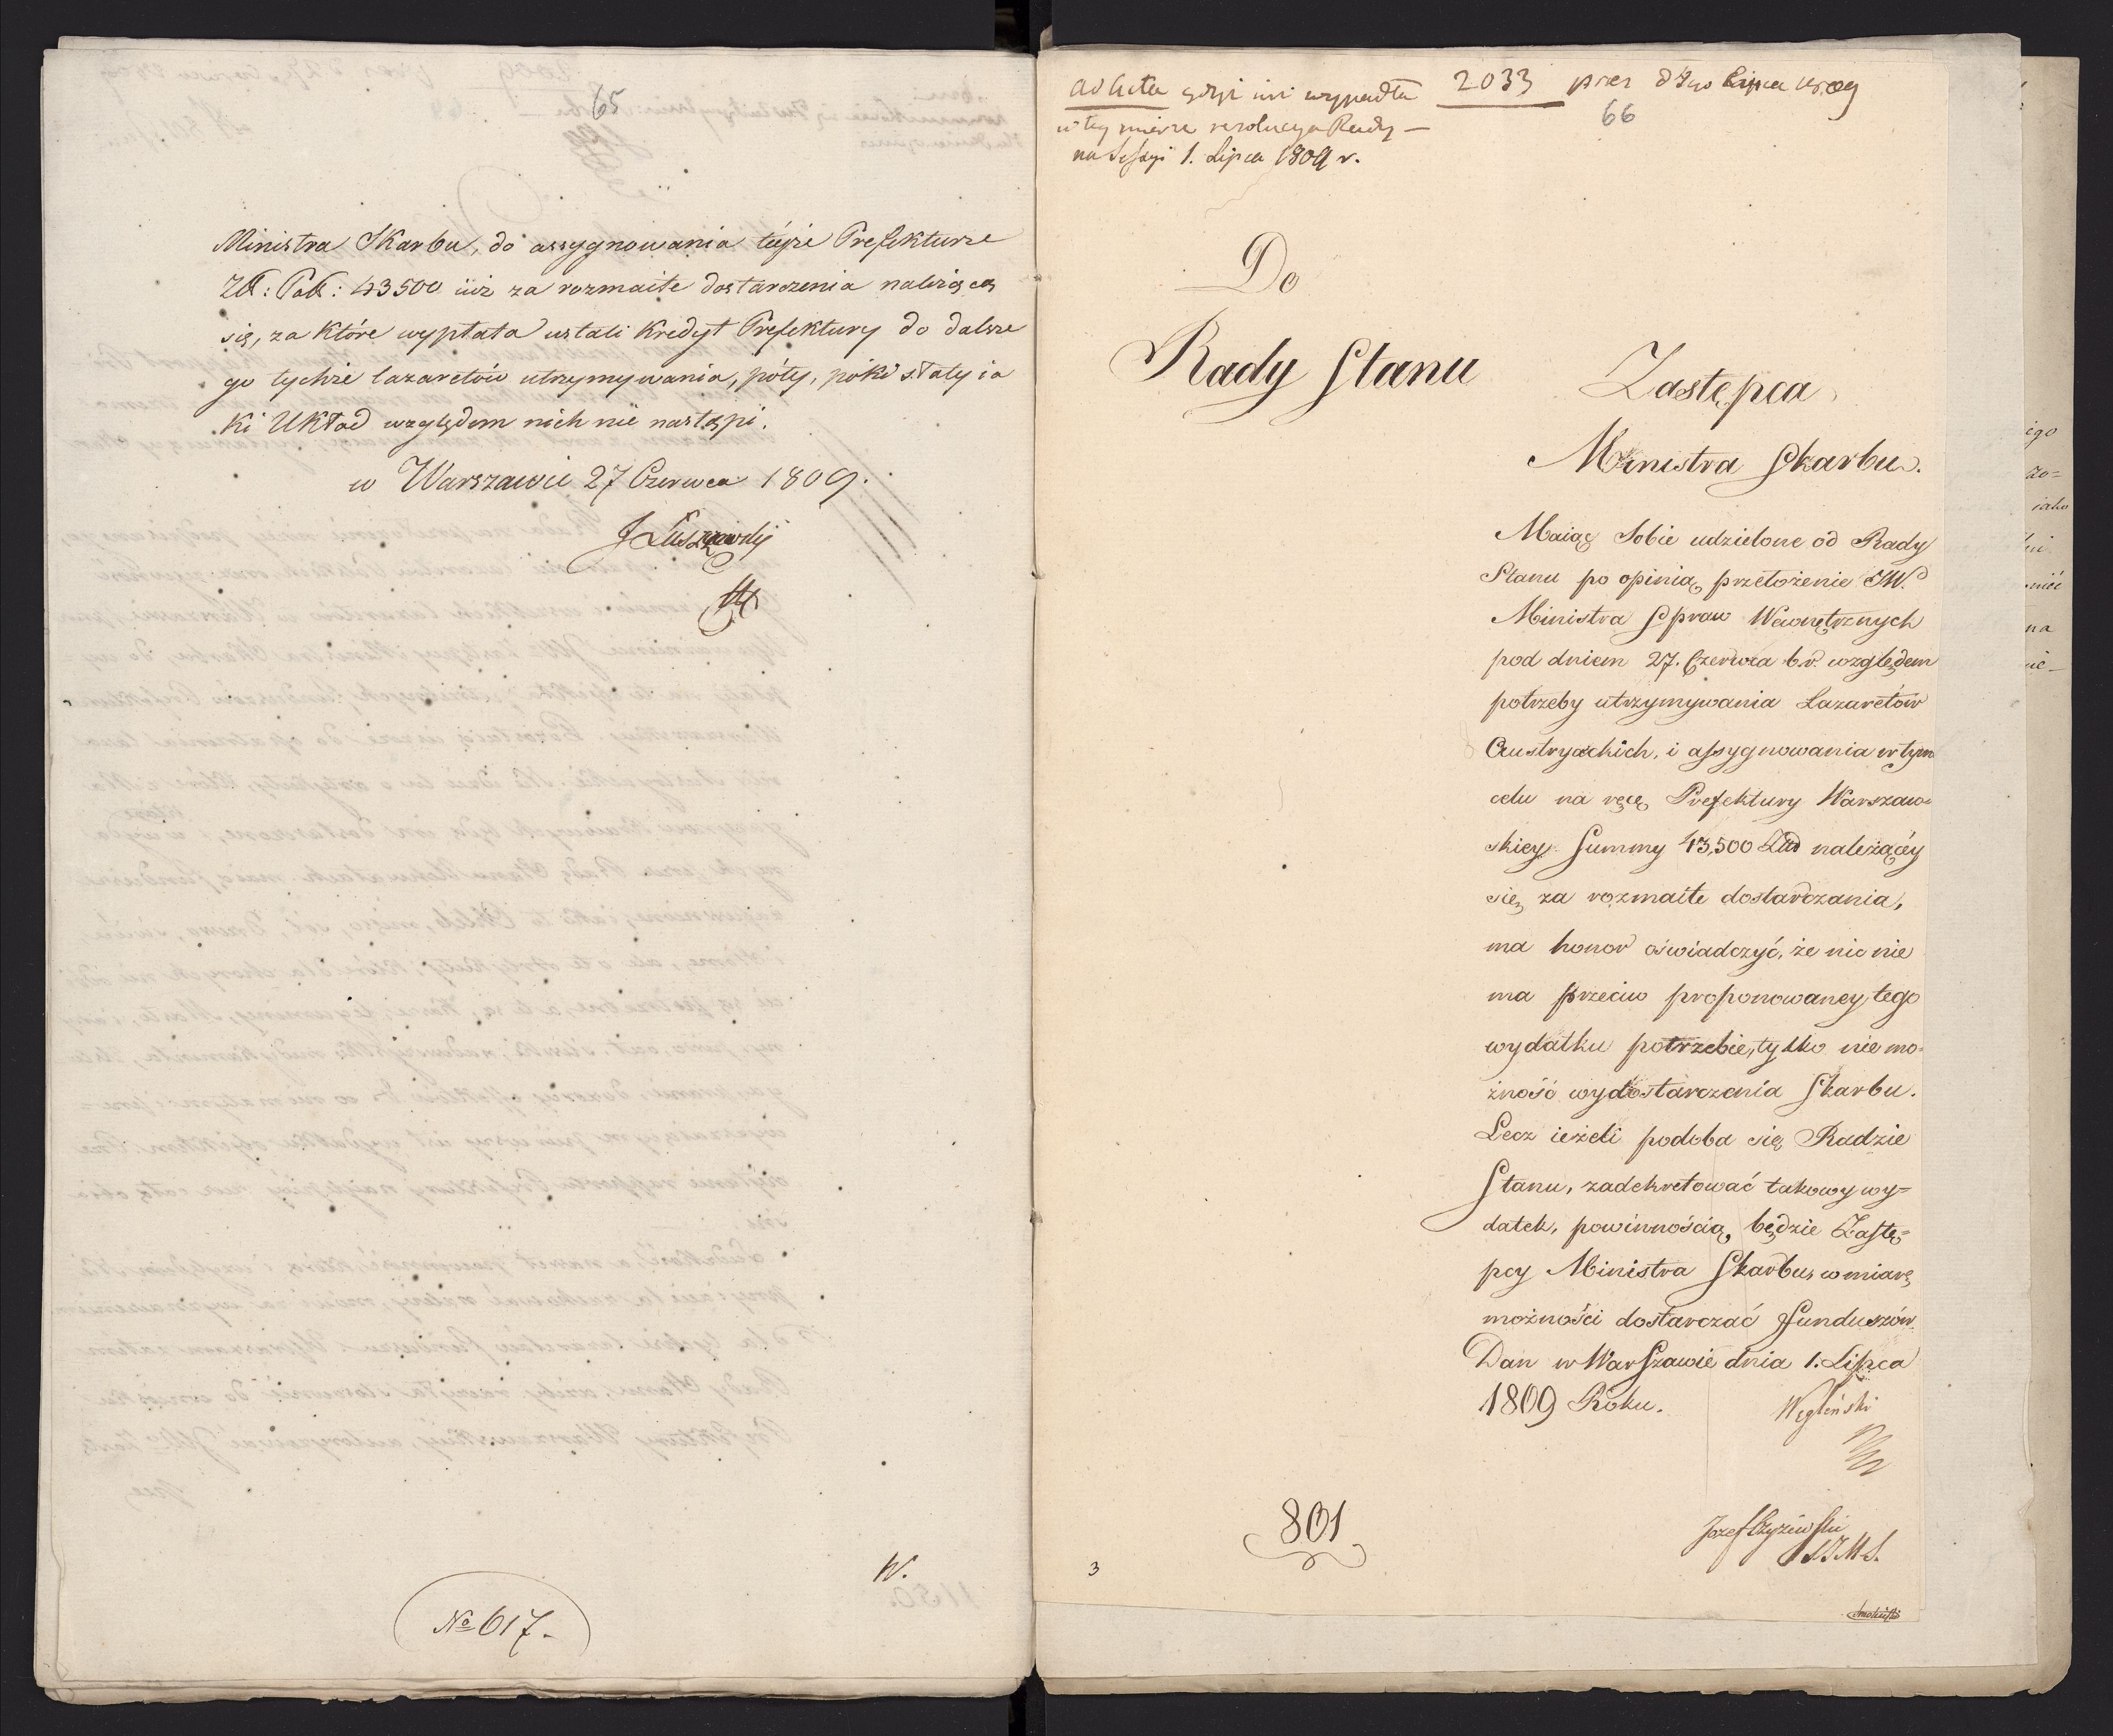 65
Ministra Skarbu, do assygnowania teyże Prefekturze
Zł: Pol: 43500 iuż za rozmaite dostarczenia należących
się, za które wypłata ustali kredyt Prefektury do dalsze
go tychże lazaretów utrzymywania, póty, póki stały ia
ki Układ względem nich nie nastąpi.
w Warszawie 27 Czerwca 1809.
J Łuszczewski
W.
No 617.
ad Acta gdyż iuż wypadła
w tey mierze rezolucya Rady —
na Sessyi 1. Lipca 1809 r.
2033
pres d 3go Lipca 1809
66
Do
Rady Stanu
Zastępca
Ministra Skarbu.
Maiąc Sobie udzielone od Rady
Stanu po opinią przełożenie JW.
Ministra Spraw Wewnętrznych
pod dniem 27. Czerwca b.r. względem
potrzeby utrzymywania Lazaretów
Austryackich, i assygnowania w tym
celu na ręcę Prefektury Warszaw-
skiey Summy 43,500 Złł należącéy
się za rozmaite dostarczania,
ma honor oświadczyć, że nic nie
ma przeciw proponowaney tego
wydatku potrzebie, tylko nie mo-
żność wydostarczania Skarbu.
Lecz ieżeli podoba się Radzie
Stanu, zadekretować takowy wy-
datek, powinnością będzie Zastę-
pcy Ministra Skarbu, w miarę
możności dostarczać Funduszów.
Dan w Warszawie dnia 1. Lipca
1809 Roku.
Węgleński
Jozef Czyżewski
S.J.M.S.
801
3